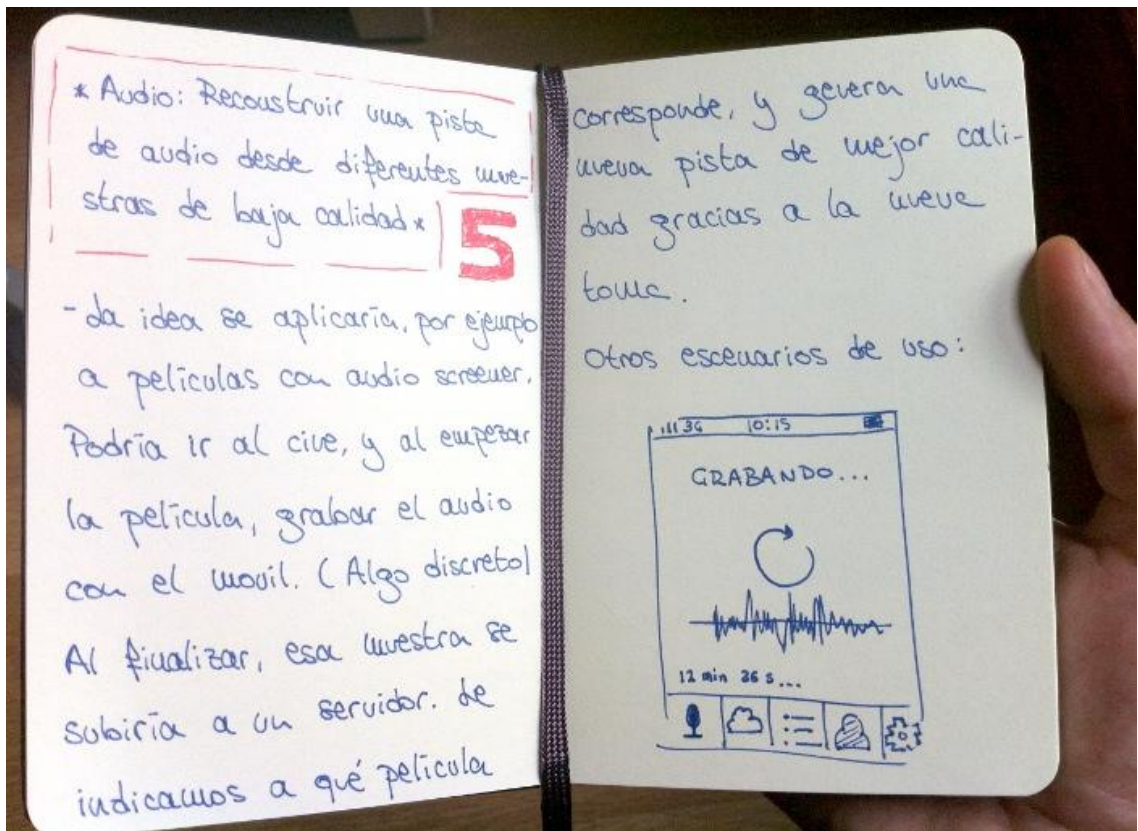 * Audio: Reconstruir una pista
de audio desde diferentes mue-
stras de baja calidad *
5
- La idea se aplicaría, por ejemplo
a películas con audio screener.
Podría ir al cine, y al empezar
la película, grabar el audio
con el movil. (Algo discreto)
Al finalizar, esa muestra se
subiría a un servidor. Le
indicamos a qué película
corresponde, y genera una
nueva pista de mejor cali-
dad gracias a la nueva
toma.
Otros escenarios de uso:
3G 10:15
GRABANDO...
12 min 36 s...